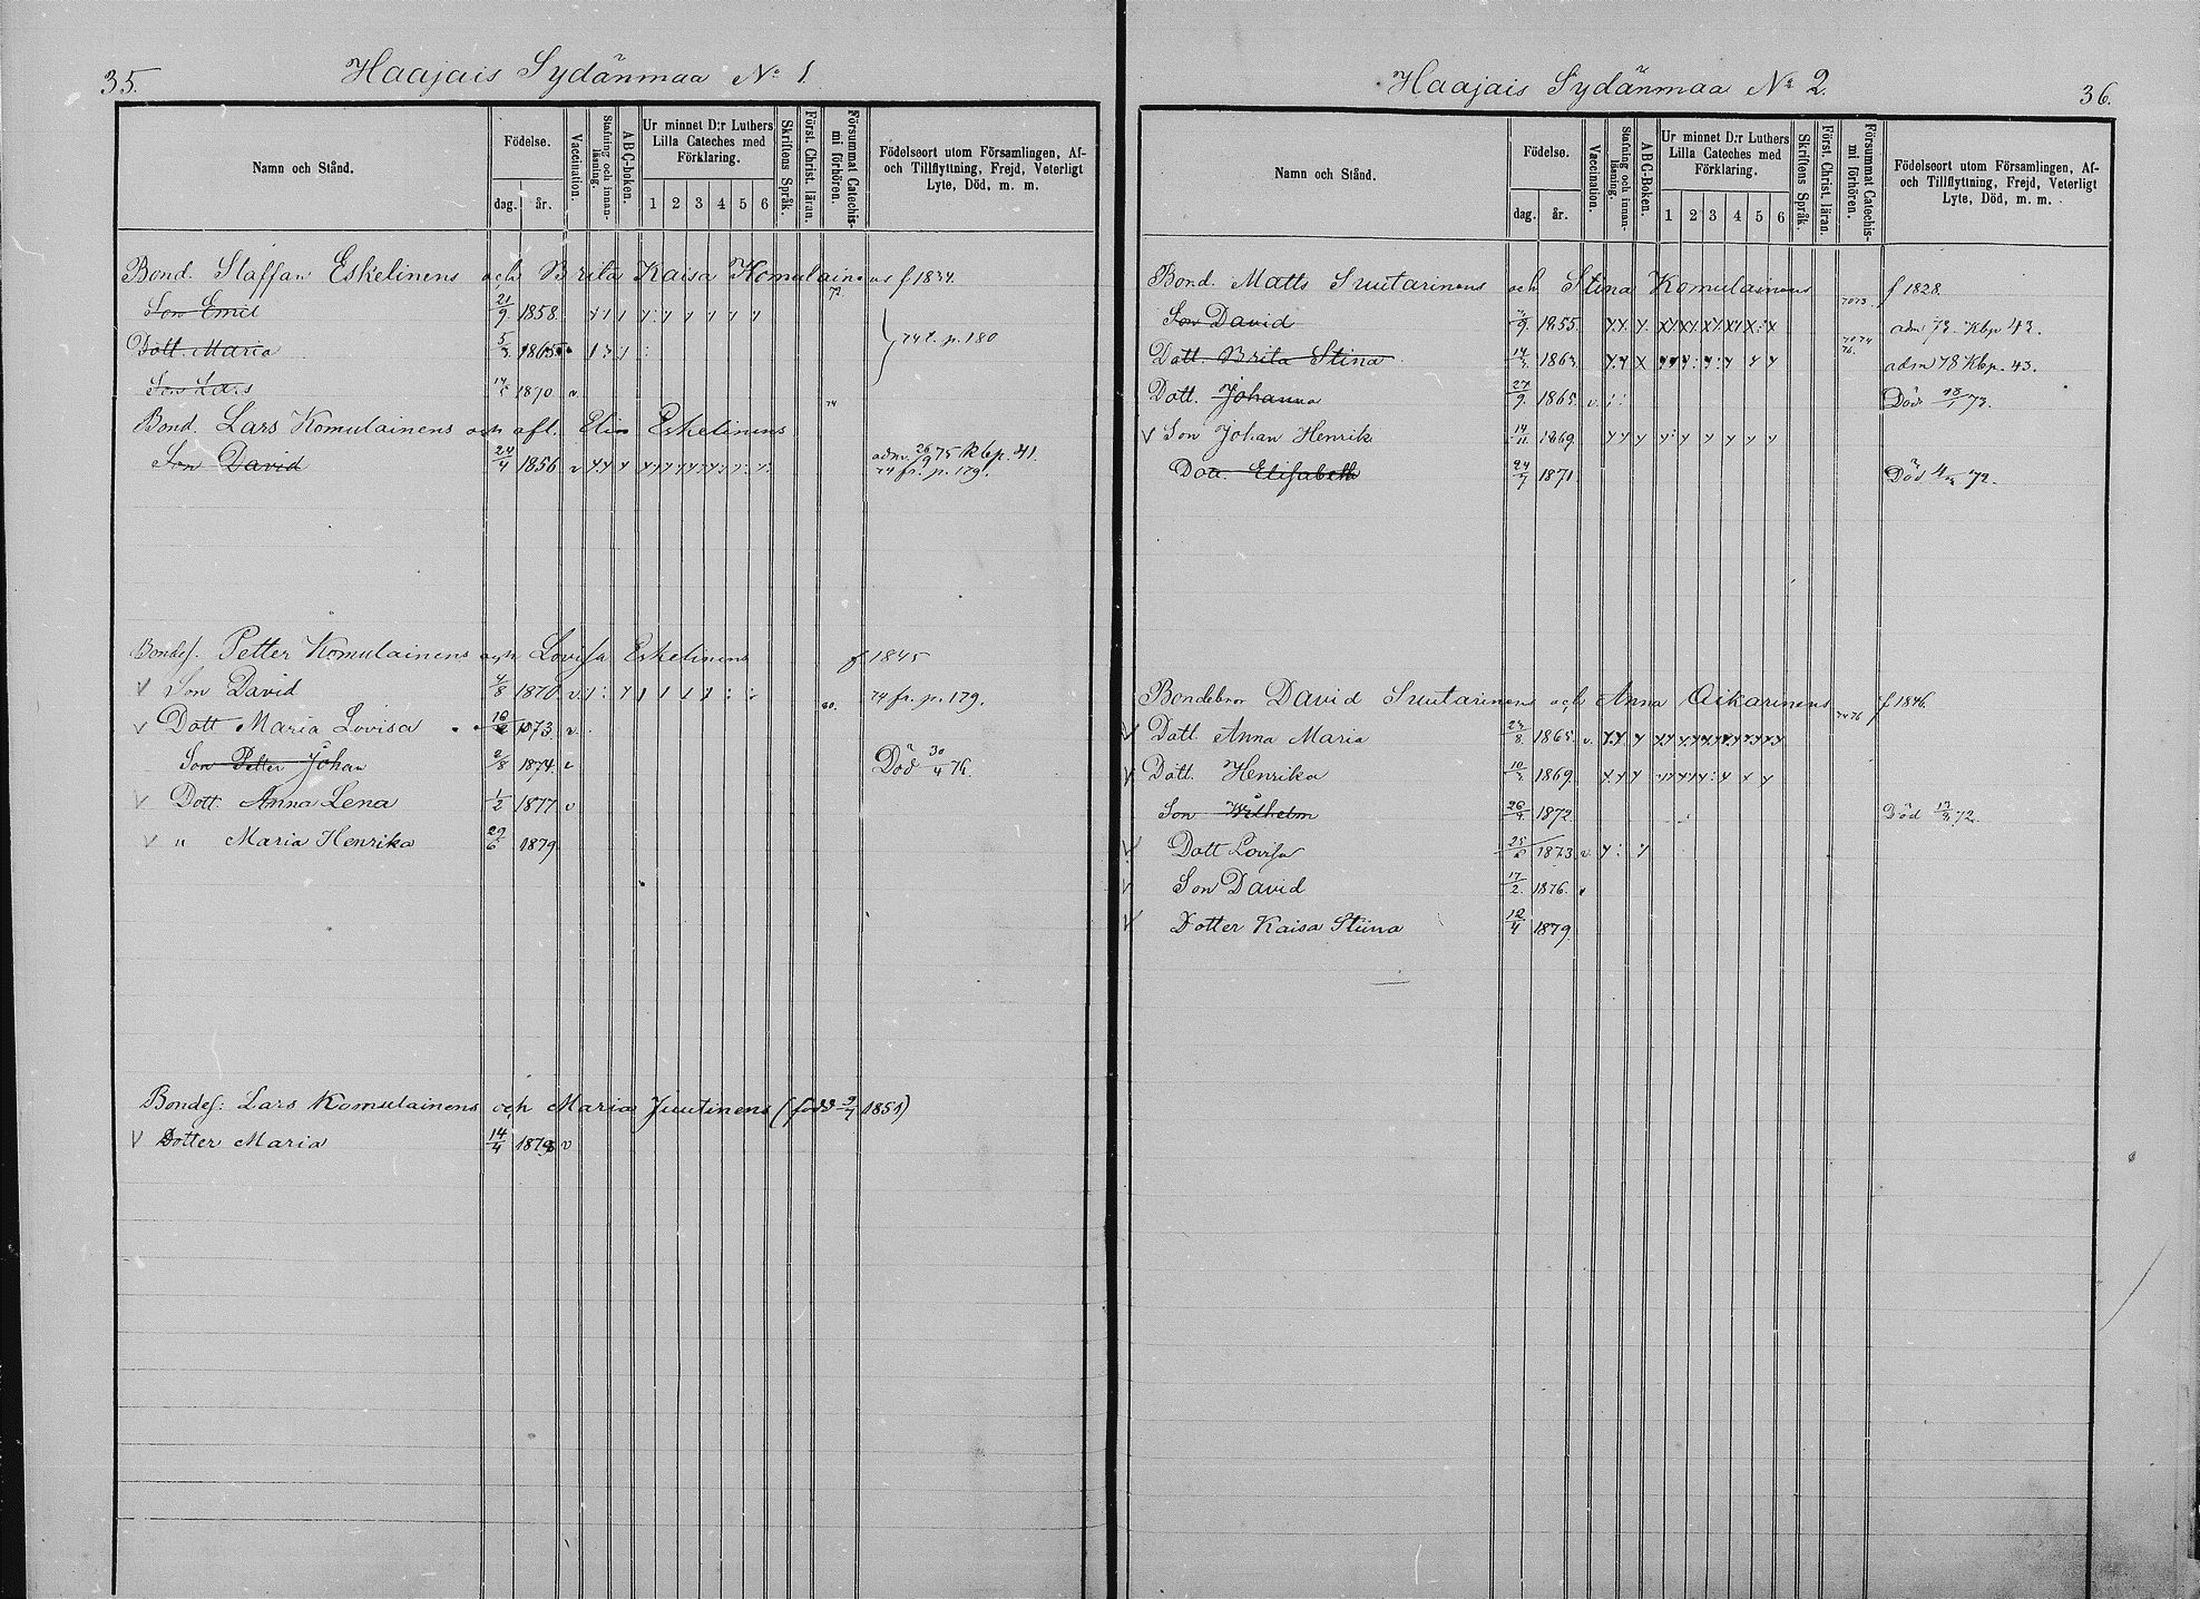 35.
Haajais Sydänmaa No 1.
Namn och Stånd.
Födelse.
dag.
år.
Vaccination.
Stafning och innan-
läsning.
ABC-boken.
Ur minnet D:r Luthers
Lilla Cateches med
Förklaring.
1 2 3 4 5 6
Skriftens Språk.
Först. Christ. läran.
Försummat Catechis-
mi förhören.
Födelseort utom Församlingen, Af-
och Tillflyttning, Frejd, Veterligt
Lyte, Död, m. m.
Bond. Staffan Eskelinens och Brita Kaisa Komulainens f 1834.
Son Emil 21/9 1858.
Dott. Maria 5/3 1865 74 t. p. 180
Son Lars 1870 v
Bond. Lars Komulainens och afl. Elin Eskelinens
Son David 24/4 1856 v adm. 26/9 75 Kbp. 41.
74 fr. p. 179.
Bondes. Petter Komulainens och Lovisa Eskelinens f 1845
V Son David 4/8 1870 v. 80. 74 fr. p. 179.
V Dott Maria Lovisa 1873 v.
Son Petter Johan 2/8 1874. v Död 30/4 76.
V Dott. Anna Lena 1/2 1877 v
V " Maria Henrika 29/6 1879
Bondes: Lars Komulainens och Maria Juutinens (född 9/7 1851)
V Dotter Maria 14/4 1879 v
Haajais Sydänmaa No 2.
36.
Namn och Stånd.
Födelse.
dag.
år.
Vaccination.
Stafning och innan-
läsning.
ABC-Boken.
Ur minnet D:r Luthers
Lilla Cateches med
Förklaring.
1 2 3 4 5 6
Skriftens Språk.
Först. Christ. läran.
Försummat Catechis-
mi förhören.
Födelseort utom Församlingen, Af-
och Tillflyttning, Frejd, Veterligt
Lyte, Död, m. m.
Bond. Matts Suutarinens och Stina Komulainens f 1828.
Son David 1855. adm 73. Kbp 43.
Dott. Brita Stina 1863. adm 78 Kbp. 43.
Dott. Johanna 27/9 1865. v. Död 18/1 73.
V Son Johan Henrik 14/11 1869
Dott. Elisabeth 24/7 1871 Död 72.
Bondebror David Suutarinens och Anna Oikarinens 74 76 f 1846.
V Dott Anna Maria 23/8 1865. v.
V Dott. Henrika 1869.
Son Wilhelm 1872. Död 72.
V Dott Lovisa 1873 v.
V Son David 17/2 1876.
V Dotter Kaisa Stiina 12/4 1879.